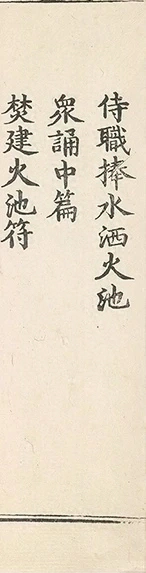 侍職捧水洒火池
衆誦中篇
焚建火池符